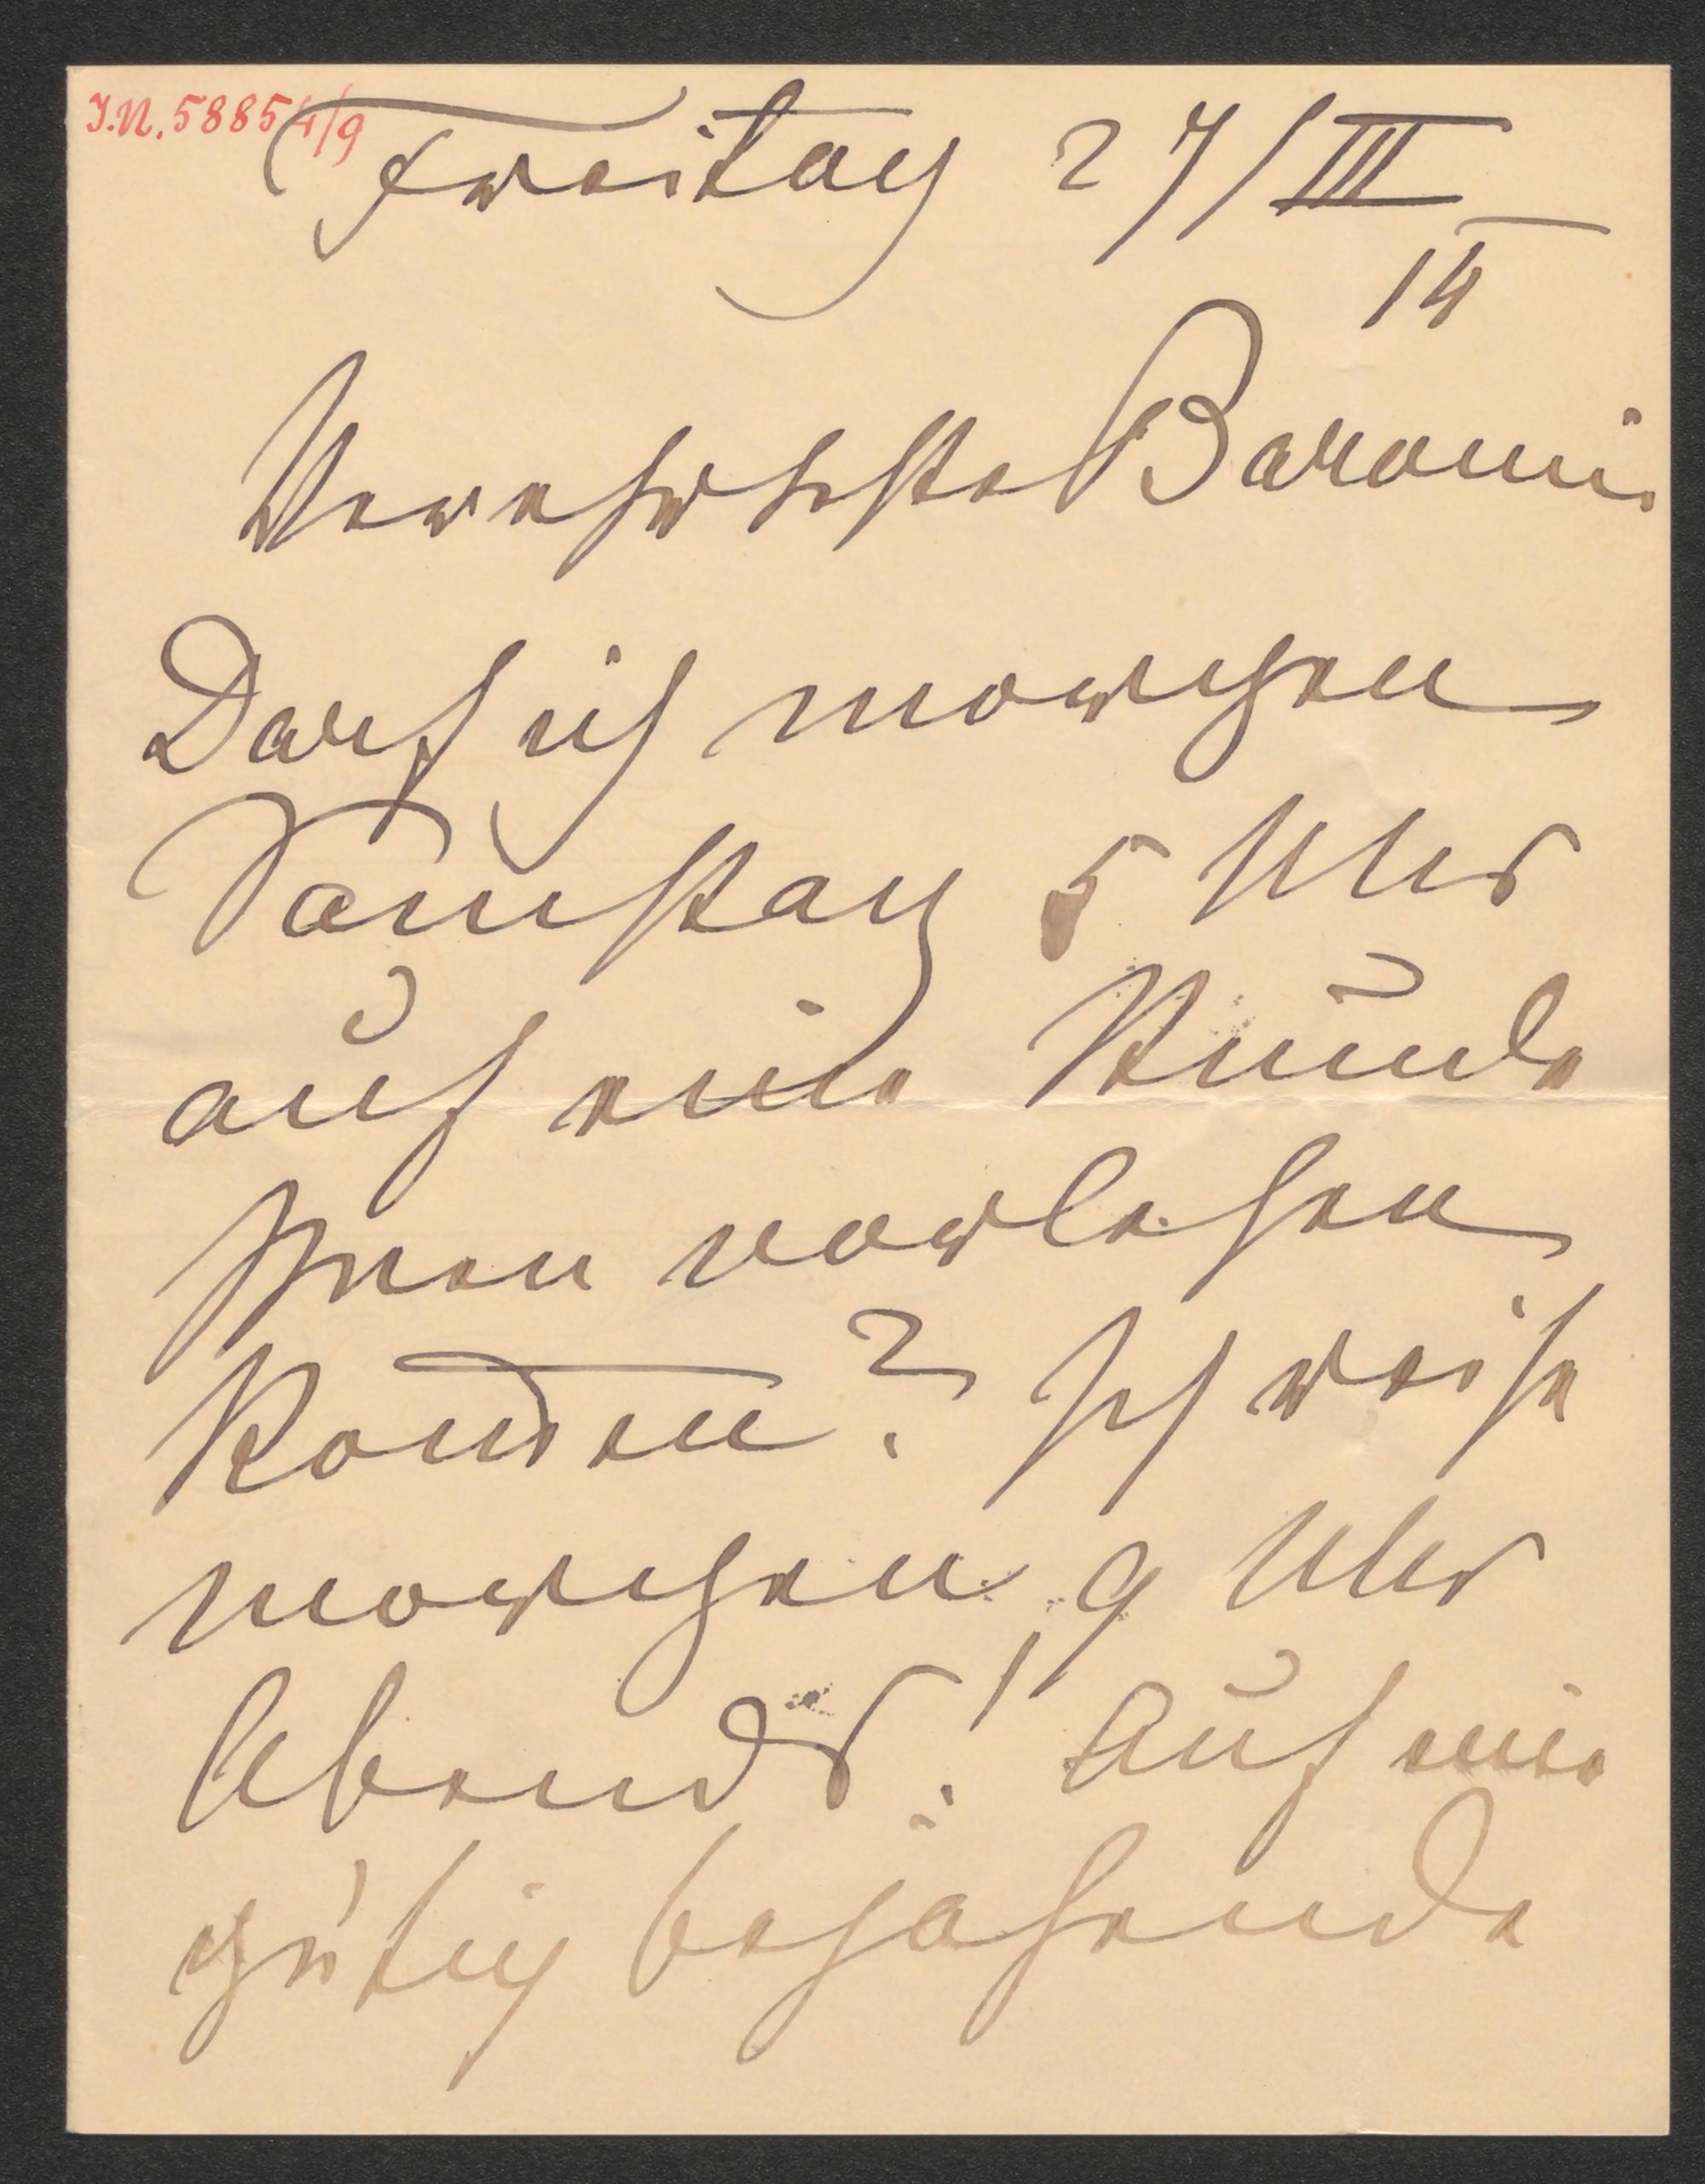 I.N. 58854/9
Freitag 27/III
14
Verehrteste Baronin.
Darf ich morgen
Samstag 5 Uhr
auf eine Stunde
Ihnen vorlesen
kom̅en? Ich reise
morgen, 9 Uhr
Abends! Auf eine
gütig bejahende